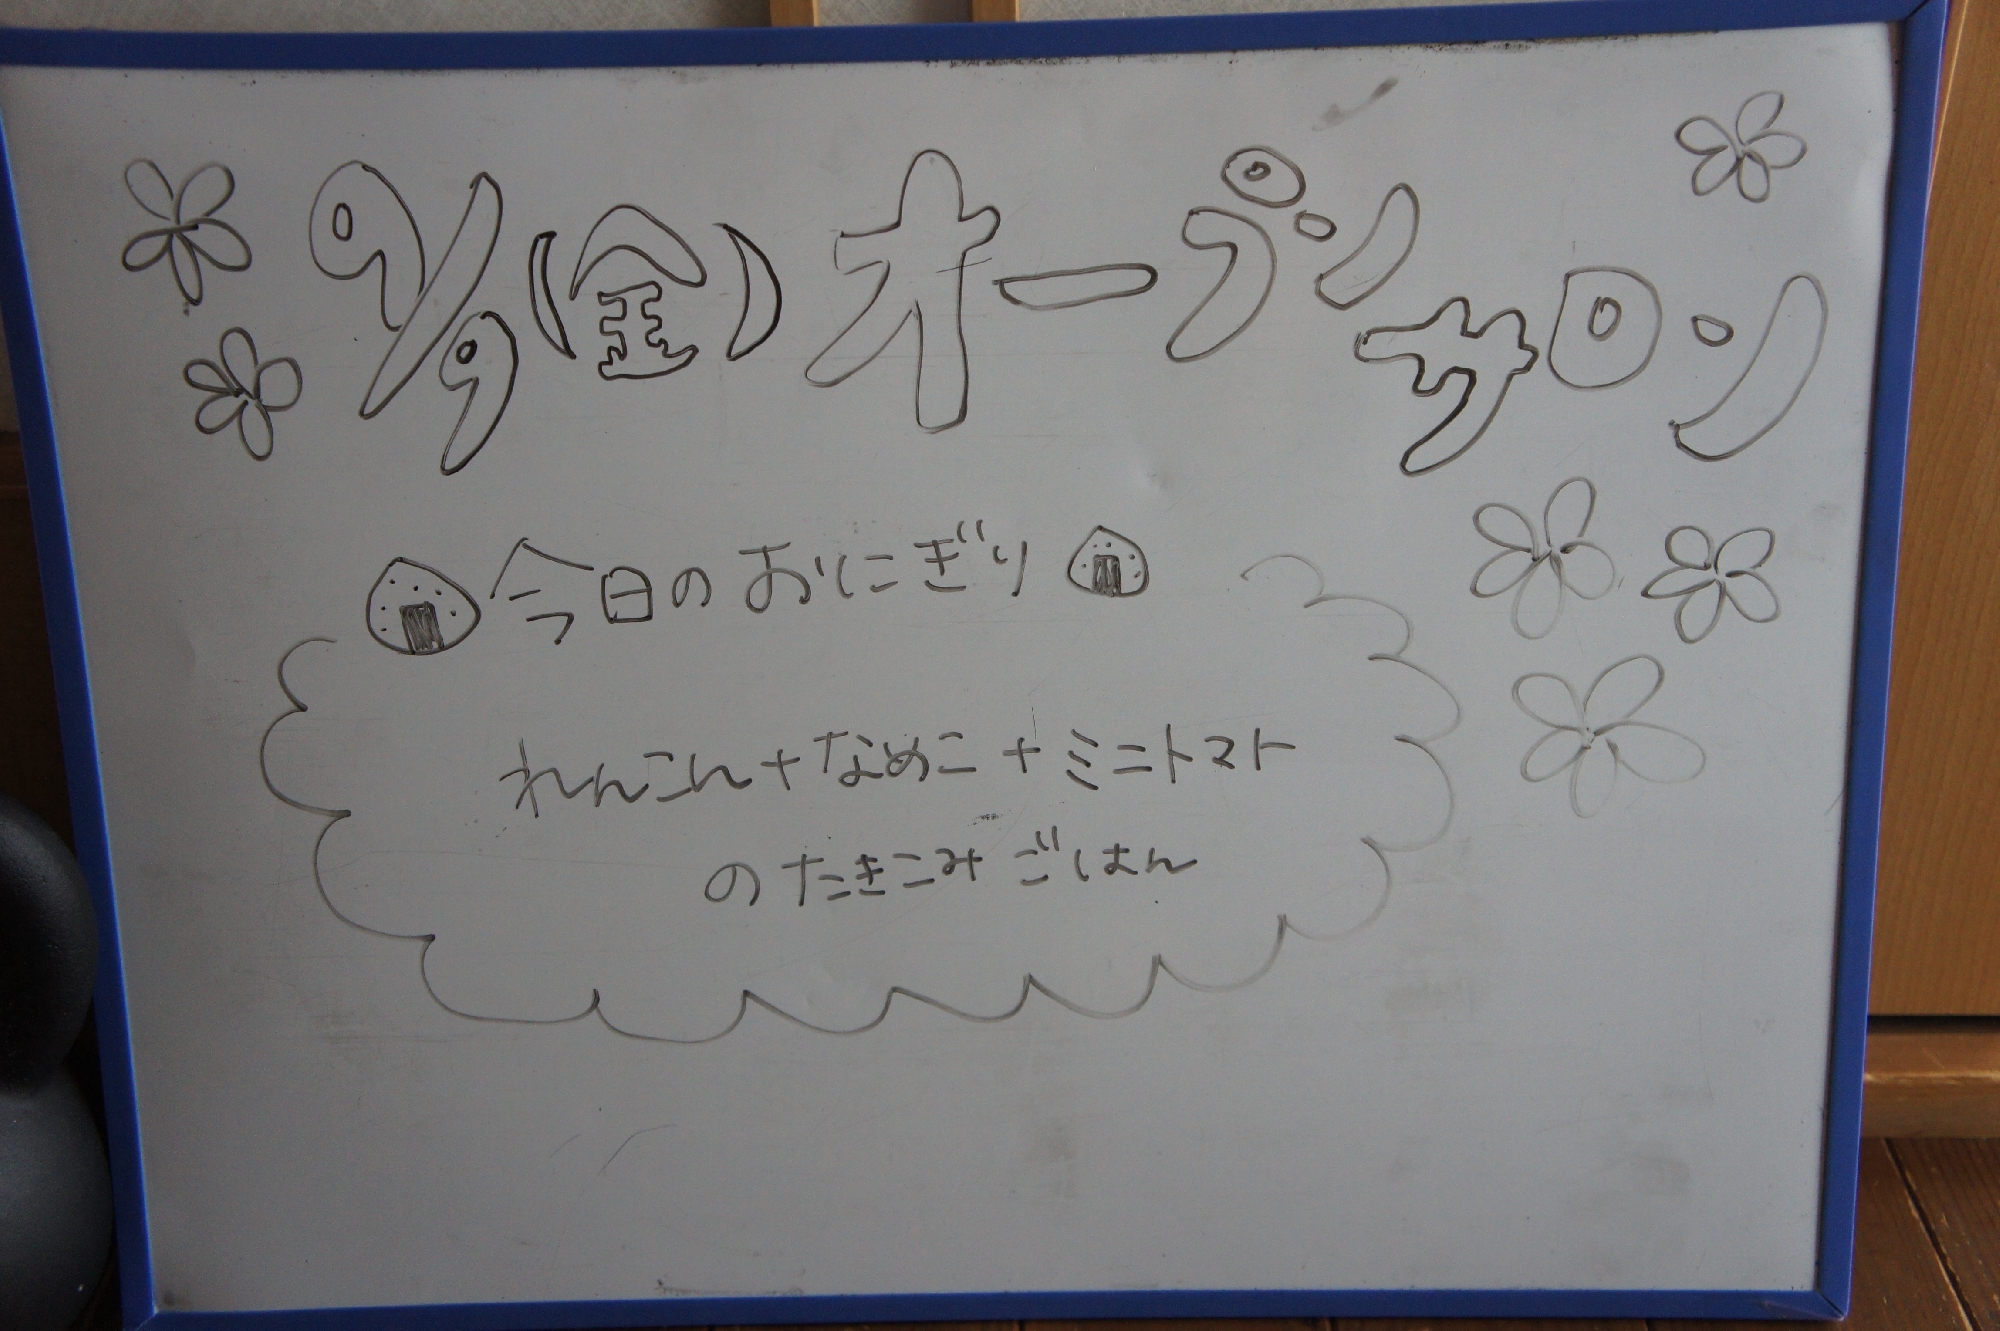 9/9(金)オープン
サロン
今日のおにぎり
れんこん+なめこ+ミニトマト
のたきこみごはん